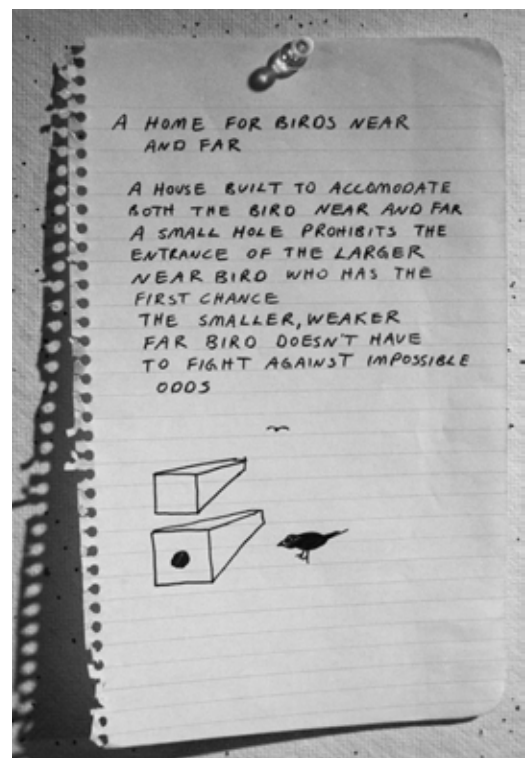 A HOME FOR BIRDS NEAR
AND FAR
A HOUSE BUILT TO ACCOMODATE
BOTH THE BIRD NEAR AND FAR
A SMALL HOLE PROHIBITS THE
ENTRANCE OF THE LARGER
NEAR BIRD WHO HAS THE
FIRST CHANCE
THE SMALLER, WEAKER
FAR BIRD DOESN'T HAVE
TO FIGHT AGAINST IMPOSSIBLE
ODDS